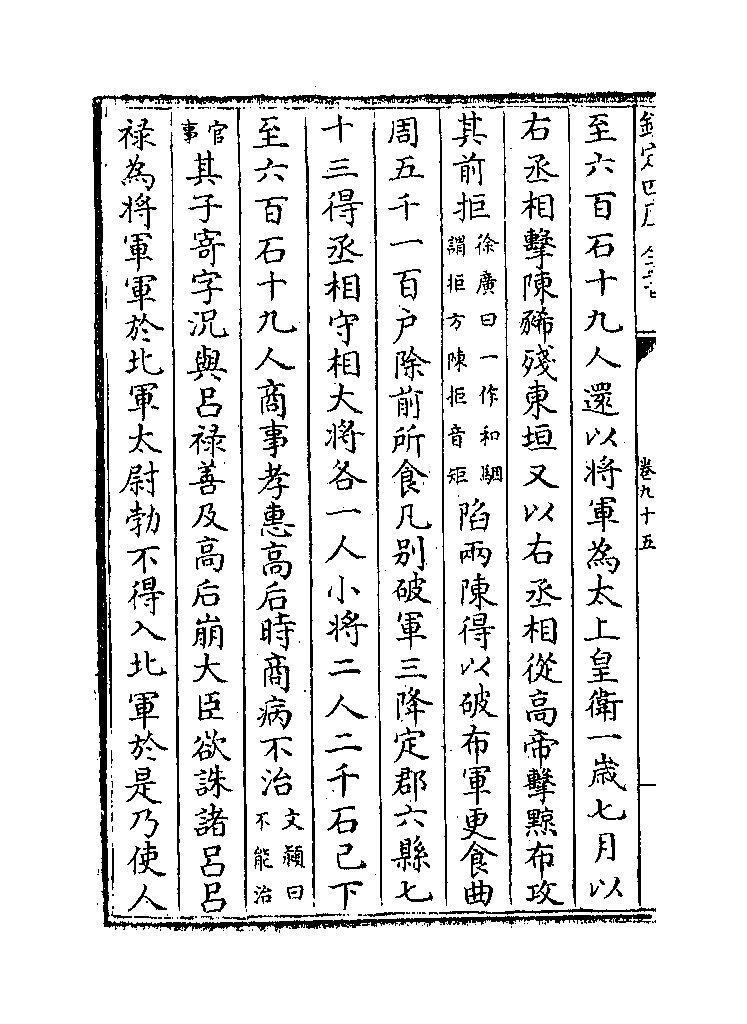 至六百石十九人還以將軍為太上皇衛一歲七月以
右丞相擊陳豨殘東垣又以右丞相從高帝擊黥布攻
其前拒徐廣曰一作和駰謂拒方陳拒音矩陷兩陳得以破布軍更食曲
周五千一百户除前所食凡别破軍三降定郡六縣七
十三得丞相守相大將各一人小將二人二千石已下
至六百石十九人商事孝惠高后時商病不治文穎曰不能治
官事其子寄字况與吕禄善及高后崩大臣欲誅諸吕吕
禄為將軍軍於北軍太尉勃不得入北軍於是乃使人
卷九十五